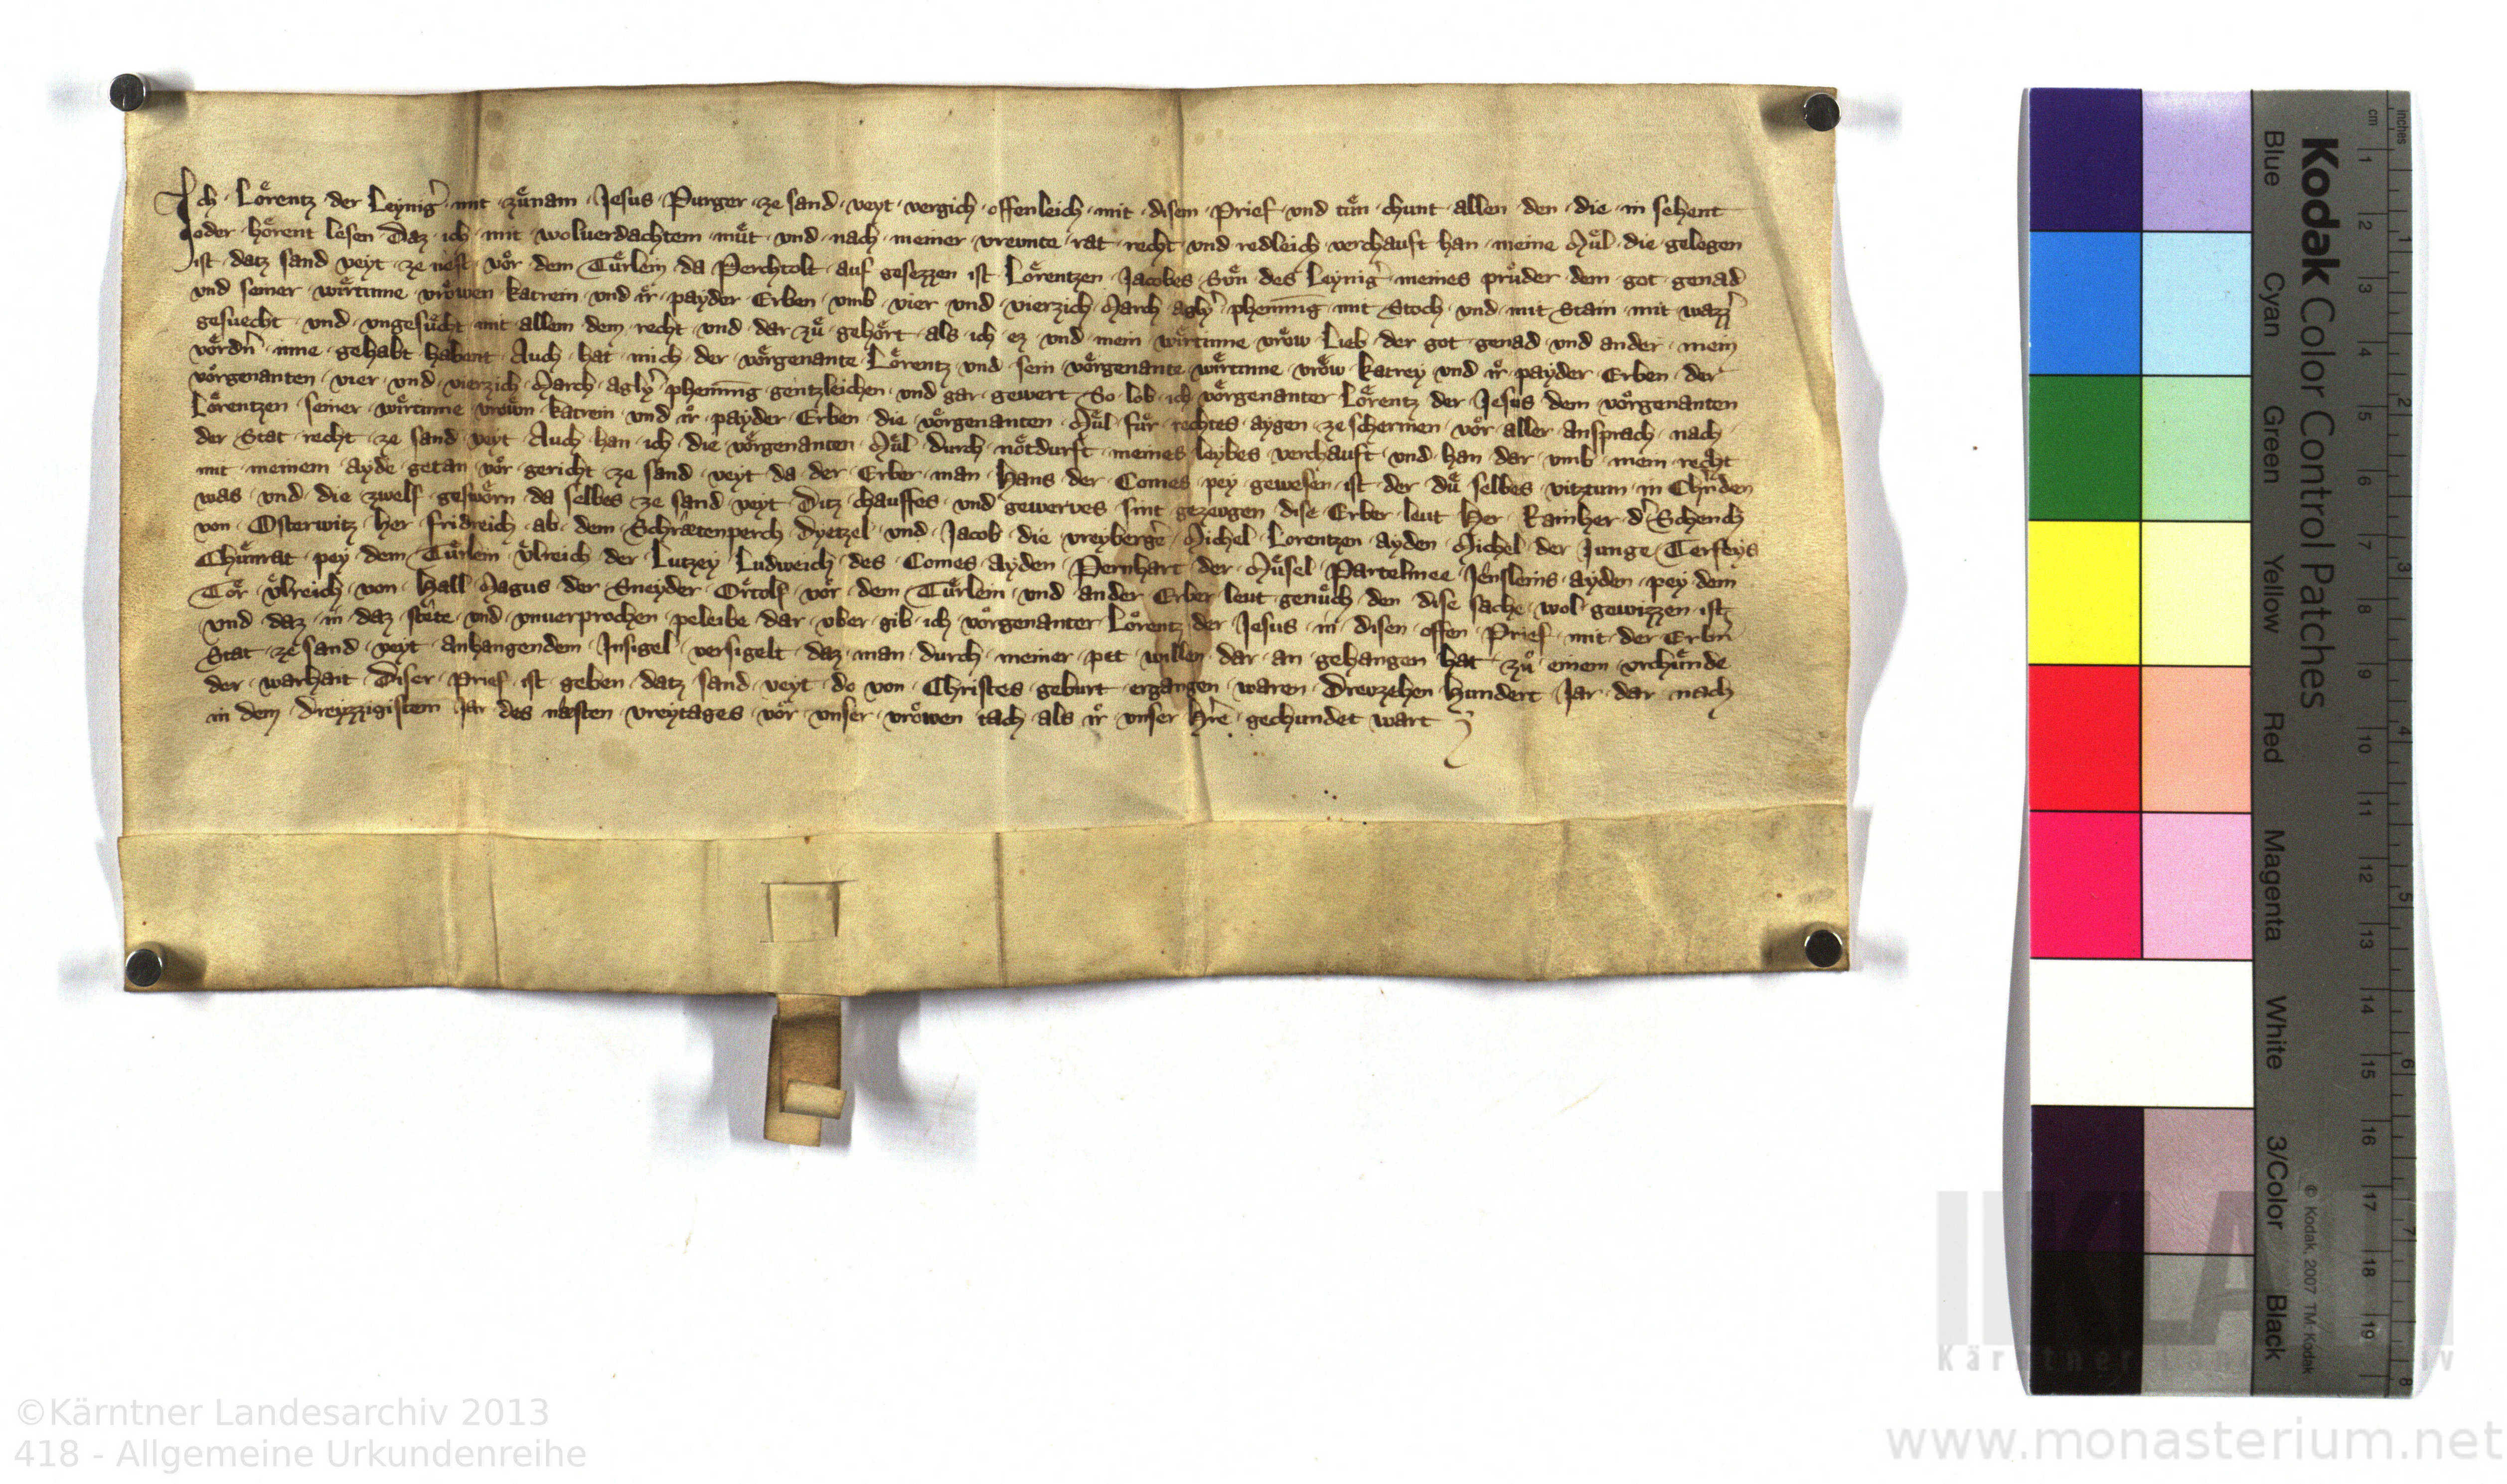 Ich · Lo̊rentz · der Leynig̕ · mit · zů̈nam · Jesus · Purger · ze sand · veyt · vergich · offenleich · mit · disem · Prief · vnd tů̈n · chunt · allen · den · die · in sehent
oder · ho̊rent lesen · Daz · ich · mit · woluerdachtem · můt · vnd · nach · meiner · vreunte · rat · recht · vnd redleich · verchauft han · meine · Můl · die · gelegen
ist · datz sand veyt · ze nest · vo̊r · dem · Tůrlein · da Perchtolt · auf gesezzen ist Lo̊rentzen · Jacobes · Sůn · des Leynig̕ · meines průder · dem · got · genad
vnd seiner · wirtinne vro̊wen katrein · vnd ir̊ · payder · Erben · vmb · vier · vnd · vierzich · March aglẏ · phenīnig · mit Stoch · vnd · mit Stain · mit wazz̕
gesuecht · vnd · vngesůcht mit allem dem · recht · vnd · dar zů · geho̊rt · als · ich · ez · vnd · mein · wirtinne vro̊w · Lieb · der got · genad · vnd ander · mein
vo̊rdn̄ · inne · gehabt habent · Auch · hat · mich · der · vo̊rgenante · Lo̊rentz · vnd · sein · vo̊rgenante · wirtinne · vro̊w · katrey vnd ir̊ · payder · Erben · der
vo̊rgenanten · vier · vnd · vierzich · March · aglẏ · phenīnig · gentzleichen · vnd gar · gewert · So lob · ich vo̊rgenanter Lo̊rentz · der · Jesus dem vo̊rgenanten
Lo̊rentzen · seiner · wirtinne vro̊wn · katrein · vnd · ir̊ · payder · Erben · die · vo̊rgenanten · Můl · fůr · rechtes · aygen · ze schermen · vo̊r · aller · ansprach · nach
der Stat · recht · ze sand · veyt · Auch · han · ich · die · vo̊rgenanten · Můl · durch · no̊tdurft · meines · leybes · verchauft · vnd · han · dar · vmb · mein · recht
mit · meinem · ayde · getan · vo̊r · gericht · ze sand · veyt · da · der · Erber · man · Hans · der · Comes · pey · gewesen · ist · der · dů · selbes · vitztum · in Chn̄den
was · vnd · die · zwelf · geswo̊rn · da selbes · ze sand · veyt · Ditz · chauffes · vnd gewerves sint · gezeugen · dise · Erber · leut · Her · Rainher · d̕ Schench
von · Osterwitz · her · fridreich · ab · dem · Schrætenperch · Dyetzel · vnd · Jacob · die · vreyberg̕e · Michel · Lorentzen · ayden · Michel · der Junge · Terseys
Chů̈nrat · pey · dem · Tůrlein · Ůlreich · der · Lutzey · Ludweich · des · Comes · ayden · Pernhart · der · Můsel · Partelmee · Jensleins · ayden · pey · dem
To̊r · Ůlreich · von · Hall · Magus · der · Sneyder · Ortolf · vo̊r · dem · Tůrlein · vnd · ander · Erber · leut · genůch · den · dise · sache · wol · gewizzen · ist
vnd · daz · in · daz · stête · vnd · vnuerprochen · peleibe · dar · vber · gib · ich · vo̊rgenanter · Lo̊rentz · der · Jesus · in · disen · offen · Prief · mit · der Erbn̄
Stat · ze sand · veyt · anhangendem · Insigel · versigelt · daz · man · durch · meiner · pet · willen · dar · an · gehangen · hat · zů · einem · vrchůnde
der · warhait · Diser · Prief · ist · geben · datz · sand · veyt · do · von · Christes · geburt · ergangen · waren · Dreuzehen · hundert · Jar · dar · nach
in dem · dreyzzigistem · Jar · des næsten · vreytages · vo̊r · vnser · vro̊wen tach · als · ir̊ · vnser · hr̄e · gechundet wart
Kodak Color Control Patches
Blue Cyan Green Yellow Red Magenta White 3/Color Black
© Kodak, 2007 TM: Kodak
cm 1 2 3 4 5 6 7 8 9 10 11 12 13 14 15 16 17 18 19
inches 1 2 3 4 5 6 7 8
Kärntner Landesarchiv
©Kärntner Landesarchiv 2013
418 - Allgemeine Urkundenreihe
www.monasterium.net